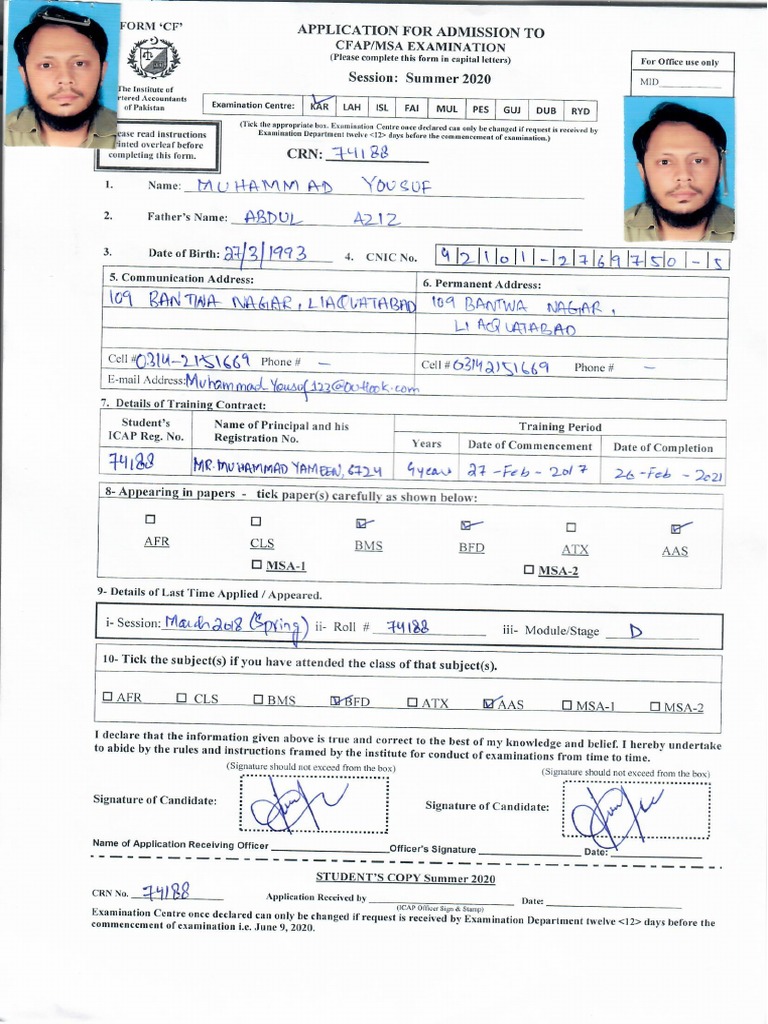 FORM 'CF'
APPLICATION FOR ADMISSION TO
CFAP/MSA EXAMINATION
(Please complete this form in capital letters)
Session: Summer 2020
For Office use only
MID
The Institute of
rtered Accountants
of Pakistan
Examination Centre: KAR LAH ISL FAI MUL PES GUJ DUB RYD
(Tick the appropriate box. Examination Centre once declared can only be changed if request is received by
Examination Department twelve <12> days before the commencement of examination.)
ease read instructions
inted overleaf before
completing this form.
CRN: 74188
1. Name: MUHAMMAD YOUSUF
2. Father's Name: ABDUL AZIZ
3. Date of Birth: 27/3/1993 4. CNIC No. 42101-2769750-5
5. Communication Address: 6. Permanent Address:
109 BANTWA NAGAR, LIAQUATABAD 109 BANTWA NAGAR,
LIAQUATABAD
Cell # 0314-2151669 Phone # - Cell # 03142151669 Phone # -
E-mail Address: Muhammad Yousuf123@outlook.com
7. Details of Training Contract:
Student's ICAP Reg. No. Name of Principal and his Registration No. Training Period
Years Date of Commencement Date of Completion
74188 MR. MUHAMMAD YAMEEN, 6724 4 years 27-Feb-2017 26-Feb-2021
8- Appearing in papers - tick paper(s) carefully as shown below:
AFR CLS BMS BFD ATX AAS
MSA-1 MSA-2
9- Details of Last Time Applied / Appeared.
i- Session: March 2018 (Spring) ii- Roll # 74188 iii- Module/Stage D
10- Tick the subject(s) if you have attended the class of that subject(s).
AFR CLS BMS BFD ATX AAS MSA-1 MSA-2
I declare that the information given above is true and correct to the best of my knowledge and belief. I hereby undertake
to abide by the rules and instructions framed by the institute for conduct of examinations from time to time.
(Signature should not exceed from the box) (Signature should not exceed from the box)
Signature of Candidate: Signature of Candidate:
Name of Application Receiving Officer Officer's Signature Date:
STUDENT'S COPY Summer 2020
CRN No. 74188 Application Received by Date:
(ICAP Officer Sign & Stamp)
Examination Centre once declared can only be changed if request is received by Examination Department twelve <12> days before the
commencement of examination i.e. June 9, 2020.